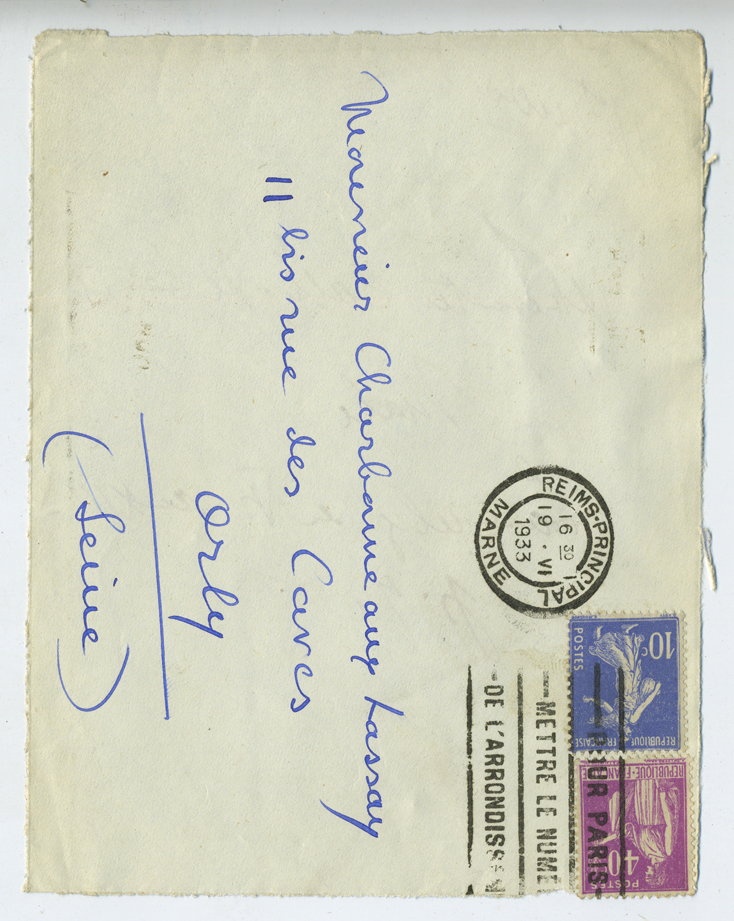 REIMS-PRINCIPAL
16 30
19 · VI
1933
MARNE
POUR PARIS
METTRE LE NUMÉ
DE L'ARRONDISSEM
10c
POSTES
REPUBLIQUE FRANÇAISE
40c
POSTES
REPUBLIQUE·FRANÇAISE
Monsieur Charbonneaux Lassay
11 bis rue des Caves
Orly
(Seine)